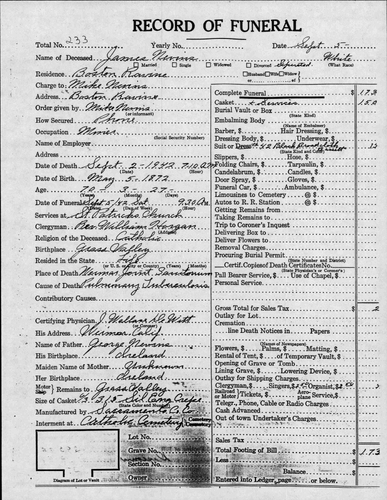 RECORD OF FUNERAL
Total No. 233 Yearly No. Date Sept. 5-
Name of Deceased James Nevins White
Married Single Widowed Divorced Separated (What Race)
Residence Boston Ravine Husband Wife Widow
Charge to Mike Nevins
Address Boston Ravine
Order given by Mike Nevins
How Secured Phone
Occupation Miner
(Social Security Number)
Name of Employer
Address
Date of Death Sept. 2-1942 7:10
Date of Birth May 5-1872
Age 70-3-27
Date of Funeral Sept 5/42 Sat 9:30
Services at St. Patricks Church
Clergyman Rev. William Horgan
Religion of the Deceased Catholic
Birthplace Grass Valley
Resided in the State Life
Place of Death Weimar Joint Sanatorium
Cause of Death Pulmonary Tuberculosis
Contributory Causes
Certifying Physician J. Wallace
His Address Weimar Calif
Name of Father George Nevins
His Birthplace Ireland
Maiden Name of Mother Unknown
Her Birthplace Ireland
to Grass Valley
Size of Casket 6/3
Manufactured by Sacramento C. Co.
Interment at Catholic Cemetery
Lot No.
Grave No.
Section No.
Owner
Diagram of Lot or Vault
Complete Funeral $ 173
Casket & Services 150
Burial Vault or Box
(State Kind)
Embalming Body
(Name of Embalmer)
Barber, $ Hair Dressing, $
Dressing Body, $ Underwear, $
Suit or Dress
Slippers, $ Hose, $
Folding Chairs, $ Tarpaulin, $
Candelabrum, $ Candles, $
Door Spray, $ Gloves, $
Funeral Car, $ Ambulance, $
Limousines to Cemetery @ $
Autos to R. R. Station @ $
Getting Remains from
Taking Remains to
Trip to Coroner's Inquest
Delivering Box to
Deliver Flowers to
Removal Charges
Procuring Burial Permit
(State Number and District)
Certif. Copies of Death Certificates No.
(State Physician's or Coroner's)
Pall Bearer Service $ Use of Chapel $
Personal Service
Gross Total for Sales Tax $
Outlay for Lot
Cremation
line Death Notices in Papers
(Name of Newspapers)
Flowers, $ Palms, $ Matting, $
Rental of Tent, $ of Temporary Vault, $
Opening of Grave or Tomb
Lining Grave, $ Lowering Device, $
Outlay for Shipping Charges
Clergyman, $ Singers, $ Organist, $
Tickets, $
Telegr., Phone, Cable or Radio Charges
Cash Advanced
Out of town Undertaker's Charges
Sales Tax
Total Footing of Bill $ 173
Less
Balance
Entered into Ledger, page or below.